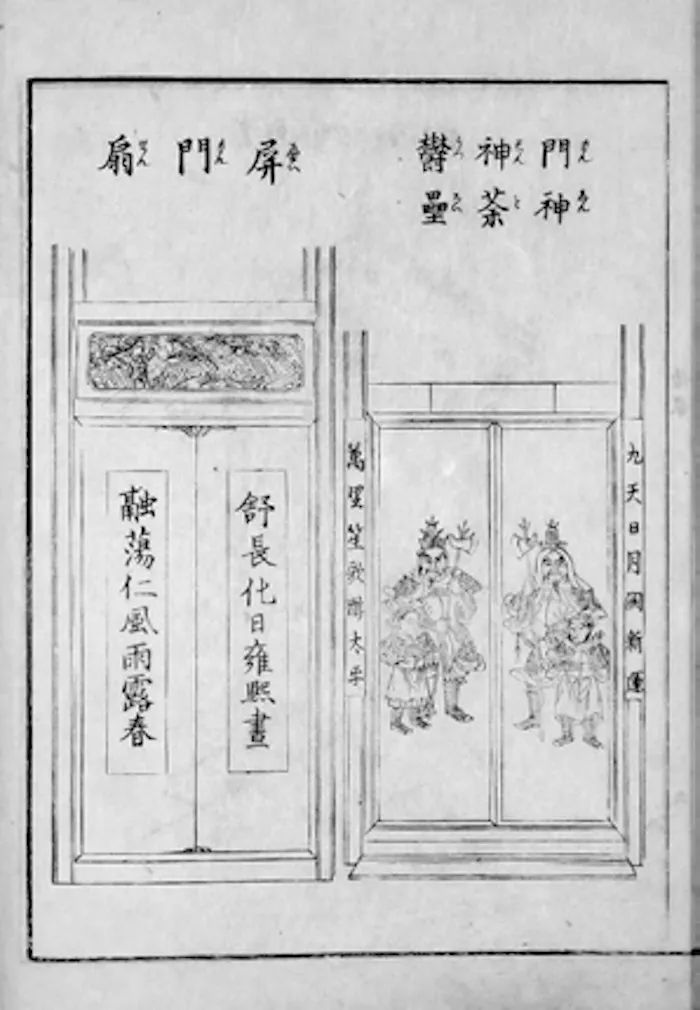 門神
神荼
鬱壘
九天日月開新運
萬里笙歌醉太平
屏門扇
舒長化日雍熙晝
融蕩仁風雨露春